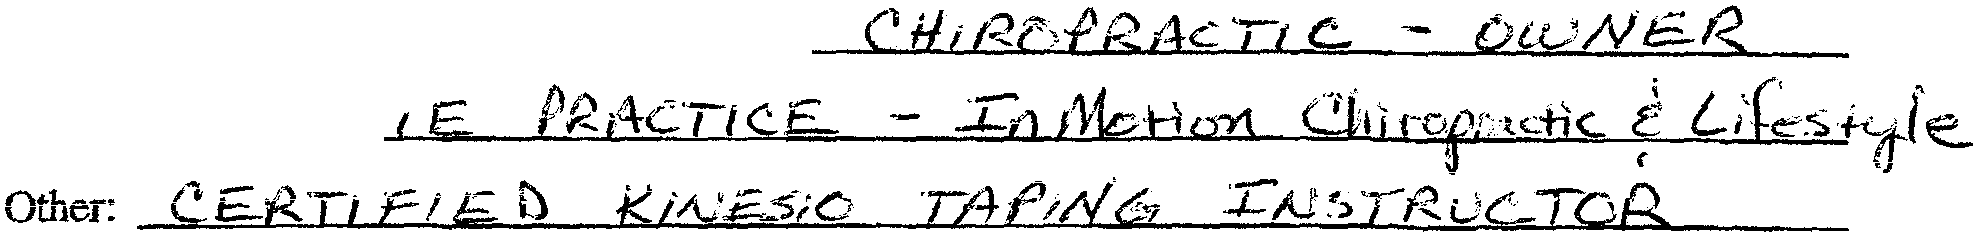 CHIROPRACTIC - OWNER
IE PRACTICE - In Motion Chiropractic & Lifestyle
Other: CERTIFIED KINESIO TAPING INSTRUCTOR